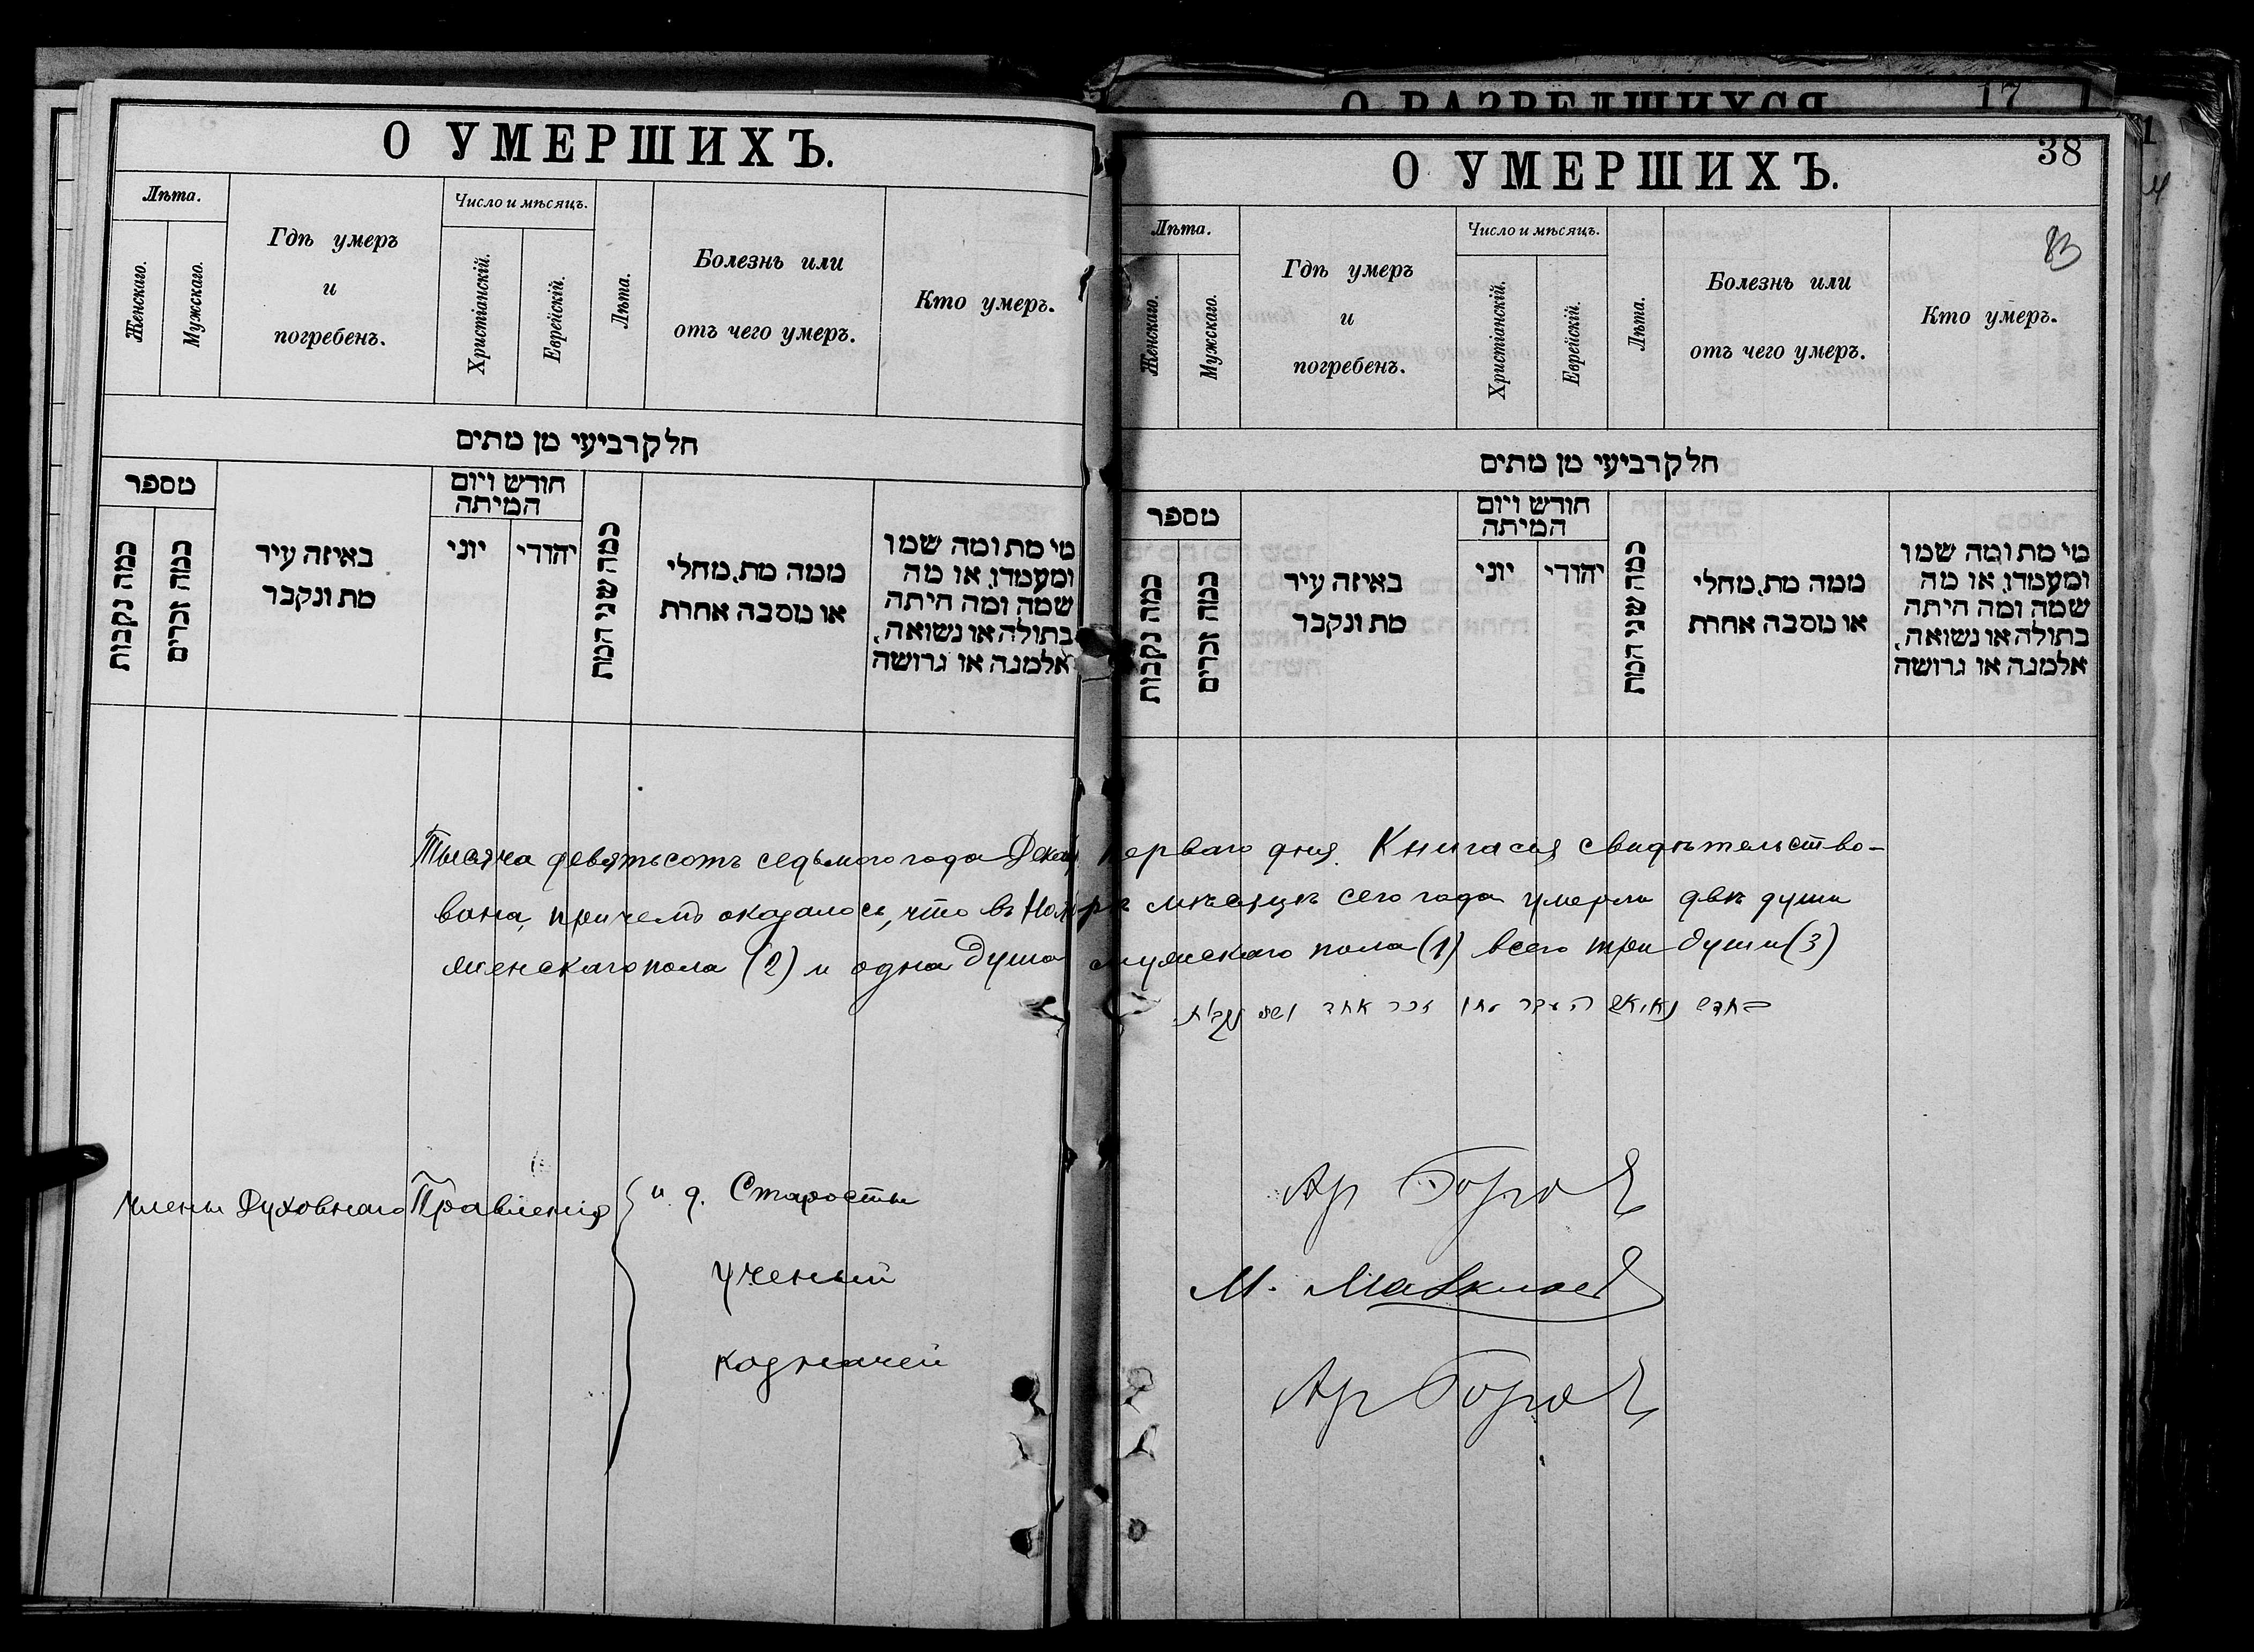 О РАЗВЕДШИХСЯ
17
О УМЕРШИХЪ.
Лѣта.
Женскаго.
Мужскаго.
Гдѣ умеръ
и
погребенъ.
Число и мѣсяцъ.
Христіанскій.
Еврейскій.
Лѣта.
Болезнь или
отъ чего умеръ.
Кто умеръ.
חלק רביעי מן מתים
מספר
כמה נקבות
כמה זכרים
באיזה עיר
מת ונקבר
חודש ויום
המיתה
יוני
יהודי
כמה שני המת
ממה מת, מחלי
או מסבה אחרת
מי מת ומה שמו
ומעמדו, או מה
שמה ומה היתה
בתולה או נשואה,
אלמנה או גרושה
38
О УМЕРШИХЪ.
83
Лѣта.
Женскаго.
Мужскаго.
Гдѣ умеръ
и
погребенъ.
Число и мѣсяцъ.
Христіанскій.
Еврейскій.
Лѣта.
Болезнь или
отъ чего умеръ.
Кто умеръ.
חלק רביעי מן מתים
מספר
כמה נקבות
כמה זכרים
באיזה עיר
מת ונקבר
חודש ויום
המיתה
יוני
יהודי
כמה שני המת
ממה מת, מחלי
או מסבה אחרת
מי מת ומה שמו
ומעמדו, או מה
שמה ומה היתה
בתולה או נשואה,
אלמנה או גרושה
Тысяча девятьсотъ седьмого года Декаб перваго дня. Книга сія свидѣтельство-
вана, причемъ оказалось, что въ Ноябрѣ мѣсяцѣ сего года умерли двѣ души
женскаго пола (2) и одна душа мужскаго пола (1) всего три души (3)
זכר אחד
Члены Духовнаго Правленія
и. д. Старосты
Ученый
Казначей
Ар
М.
Ар